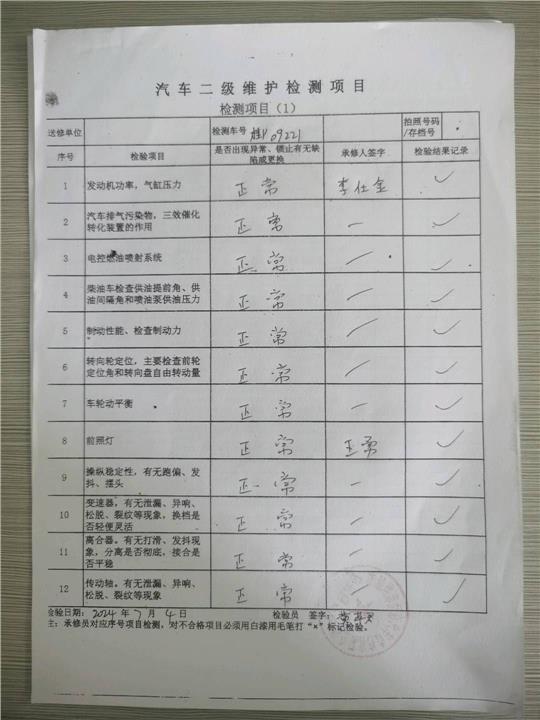 汽车二级维护检测项目
检测项目（1）
送修单位 检测车号 09221 拍照号码/存档号
序号 检验项目 是否出现异常、锁止有无缺陷或更换 承修人签字 检验结果记录
1 发动机功率，气缸压力 正常 李仕金 ✓
2 汽车排气污染物，三效催化转化装置的作用 正常 — ✓
3 电控燃油喷射系统 正常 — ✓
4 柴油车检查供油提前角、供油间隔角和喷油泵供油压力 正常 — ✓
5 制动性能、检查制动力 正常 — ✓
6 转向轮定位，主要检查前轮定位角和转向盘自由转动量 正常 — ✓
7 车轮动平衡 正常 — ✓
8 前照灯 正常 ✓
9 操纵稳定性，有无跑偏、发抖、摆头 正常 — ✓
10 变速器，有无泄漏、异响、松脱、裂纹等现象，换档是否轻便灵活 正常 — ✓
11 离合器。有无打滑、发抖现象，分离是否彻底，接合是否平稳 正常 — ✓
12 传动轴，有无泄漏、异响、松脱、裂纹等现象 正常 — ✓
检验日期：2024年7月4日 检验员 签字：
注：承修员对应序号项目检测，对不合格项目必须用白漆用毛笔打“×”标记检验。